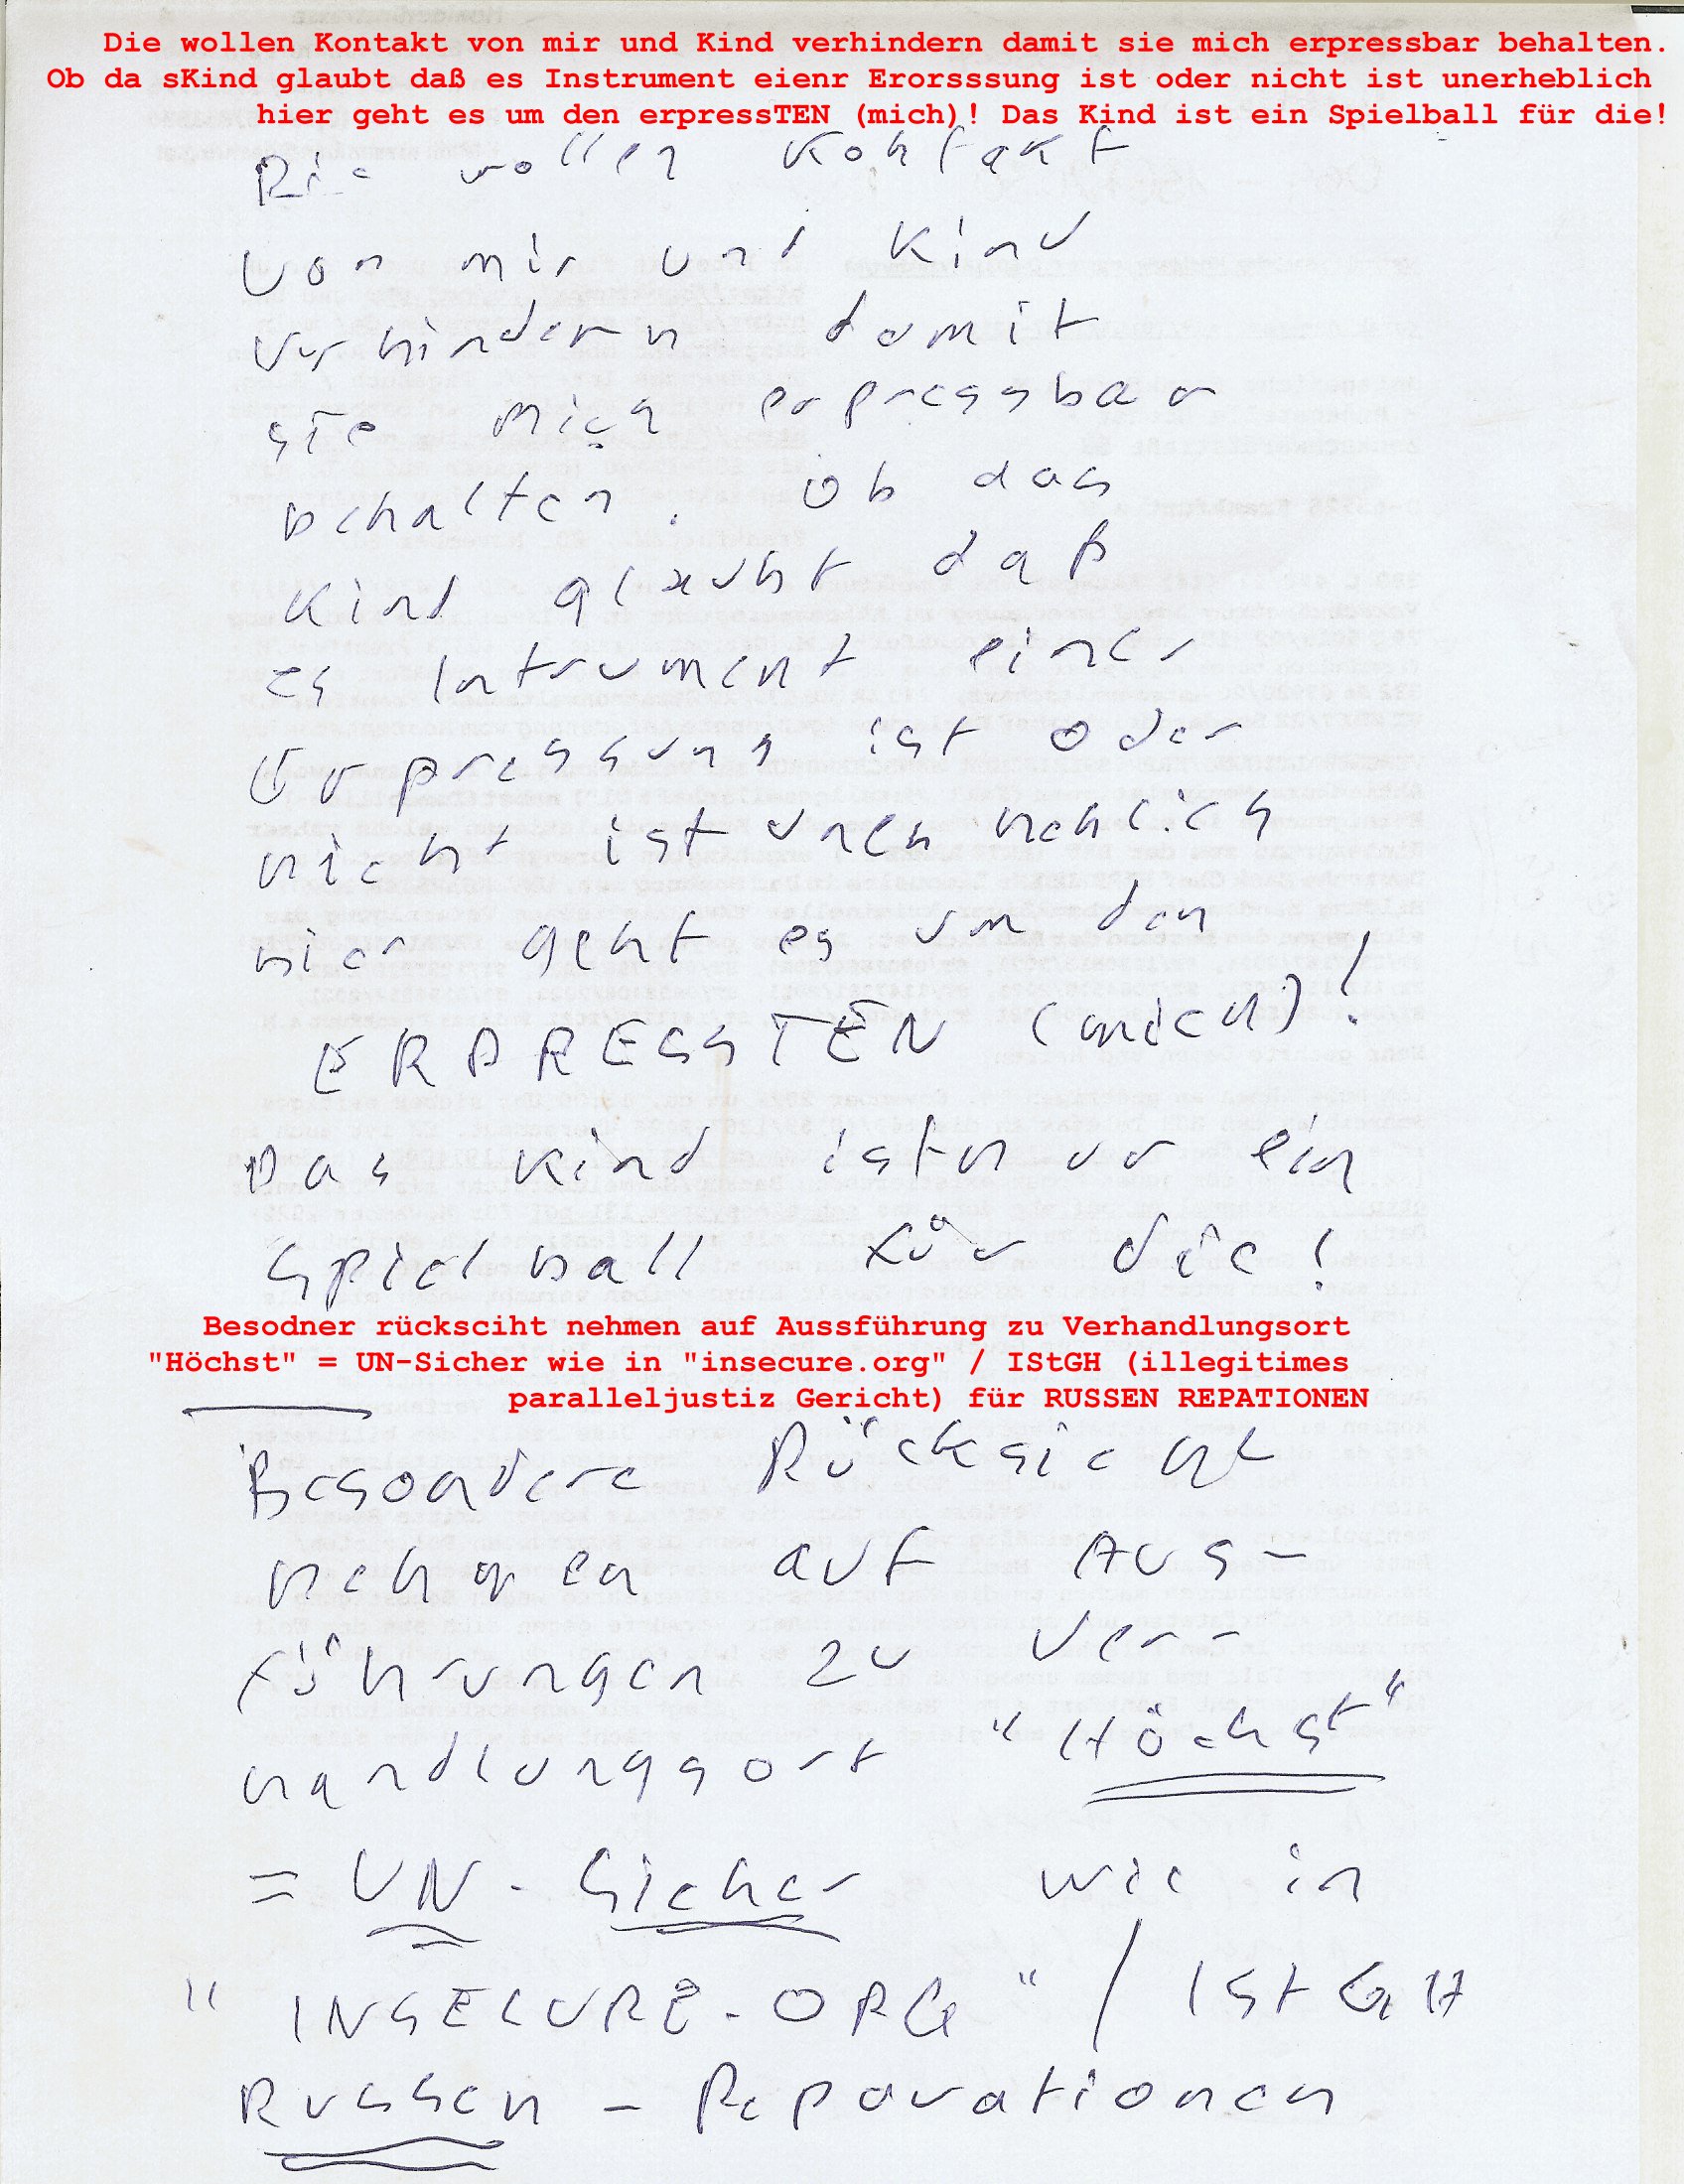 Die wollen Kontakt von mir und Kind verhindern damit sie mich erpressbar behalten.
Ob da sKind glaubt daß es Instrument eienr Erorsssung ist oder nicht ist unerheblich
hier geht es um den erpressTEN (mich)! Das Kind ist ein Spielball für die!
Die wollen Kontakt
von mir und Kind
verhindern damit
sie mich erpressbar
behalten. Ob das
Kind glaubt daß
es Intrument einer
Erpressung ist oder
nicht ist unerheblich
hier geht es um den
ERPRESSTEN (mich)!
Das Kind ist nur ein
Spielball für die!
Besodner rücksciht nehmen auf Aussführung zu Verhandlungsort
"Höchst" = UN-Sicher wie in "insecure.org" / IStGH (illegitimes
paralleljustiz Gericht) für RUSSEN REPATIONEN
Besondere Rücksicht
nehmen auf Aus-
führungen zu Ver-
handlungsort "Höchst"
= UN-Sicher wie in
"INSECURE.ORG" / IStGH
Russen - Reparationen